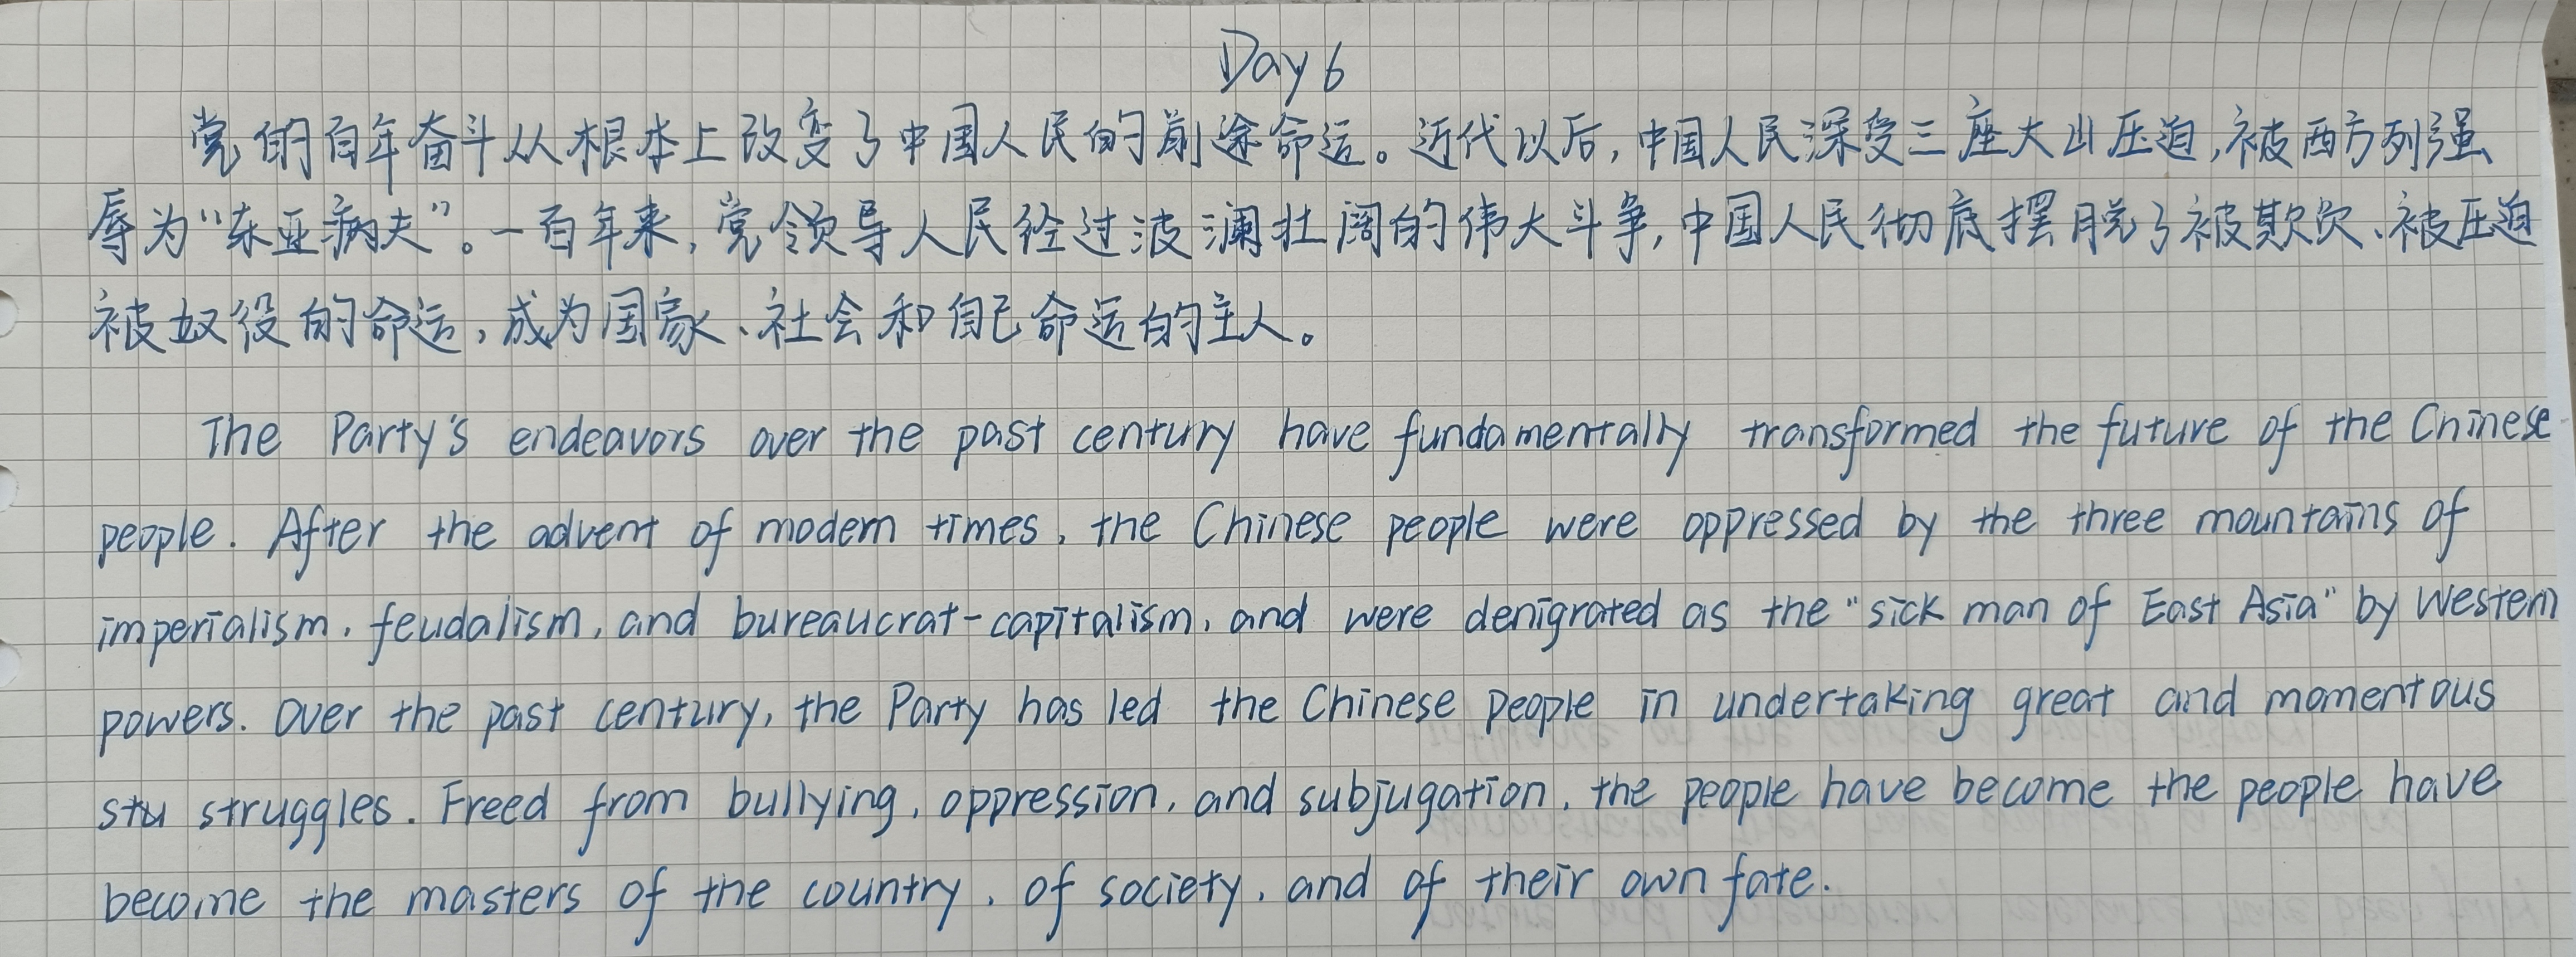 Day 6
党的百年奋斗从根本上改变了中国人民的前途命运。近代以后,中国人民深受三座大山压迫,被西方列强
辱为“东亚病夫”。一百年来,党领导人民经过波澜壮阔的伟大斗争,中国人民彻底摆脱了被欺负、被压迫
被奴役的命运,成为国家、社会和自己命运的主人。
The Party's endeavors over the past century have fundamentally transformed the future of the Chinese
people. After the advent of modern times, the Chinese people were oppressed by the three mountains of
imperialism, feudalism, and bureaucrat-capitalism, and were denigrated as the "sick man of East Asia" by Western
powers. Over the past century, the Party has led the Chinese people in undertaking great and momentous
stu struggles. Freed from bullying, oppression, and subjugation, the people have become the people have
become the masters of the country, of society, and of their own fate.